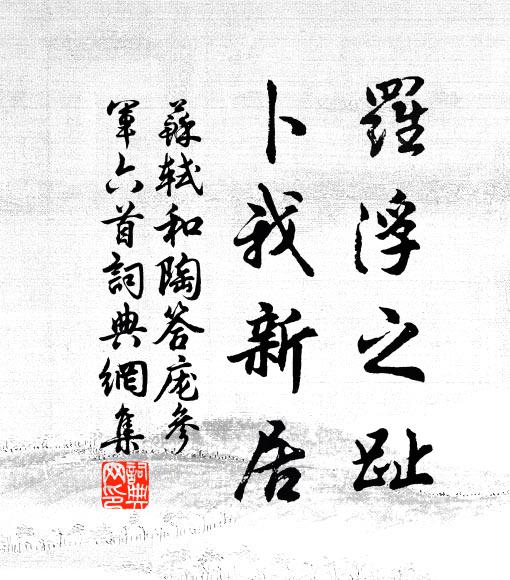 羅浮之趾
卜我新居
蘇軾和陶答庞參
軍六首詞典網集
詞典网印